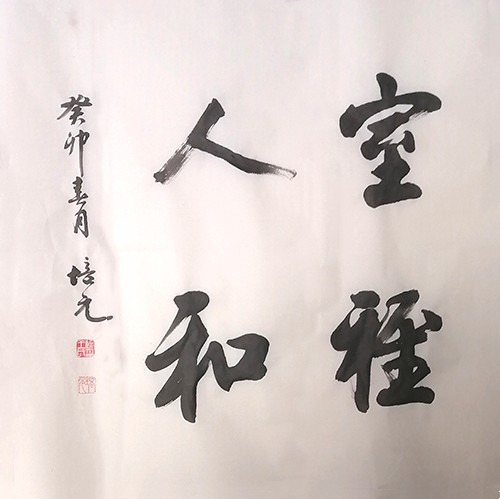 室雅
人和
癸卯春月 培元